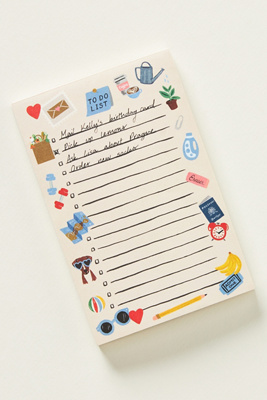 TO DO
LIST
Mail Kelly's birthday card
Pick up lemons
Ask Lisa about Prague
Order new